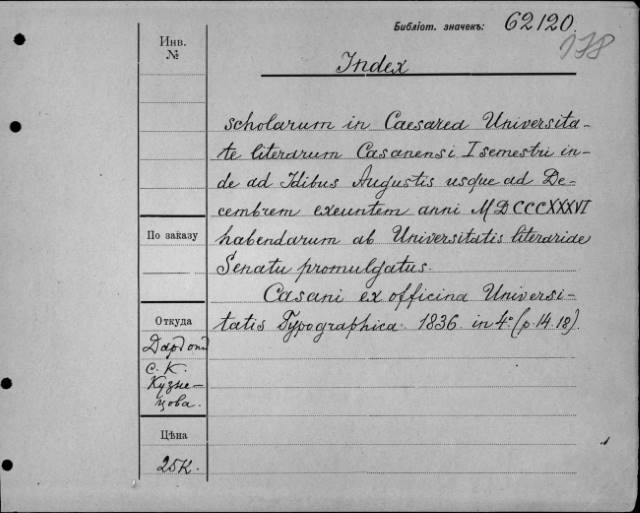 Библіот. значекъ: 62120.
178
Инв.
№
Index
scholarum in Caesarea Universita-
te literarum Casanensi I semestri in-
de ad Idibus Augustis usque ad De-
cembrem exeuntem anni MDCCCXXXVI
По заказу
habendarum ab Universitatis literariae
Senatu promulgatus.
Casani ex officina Universi-
Откуда
tatis Typographica. 1836. in 4.° (p. 14. 18).
С. К.
Кузне-
цова.
Цѣна
25к.